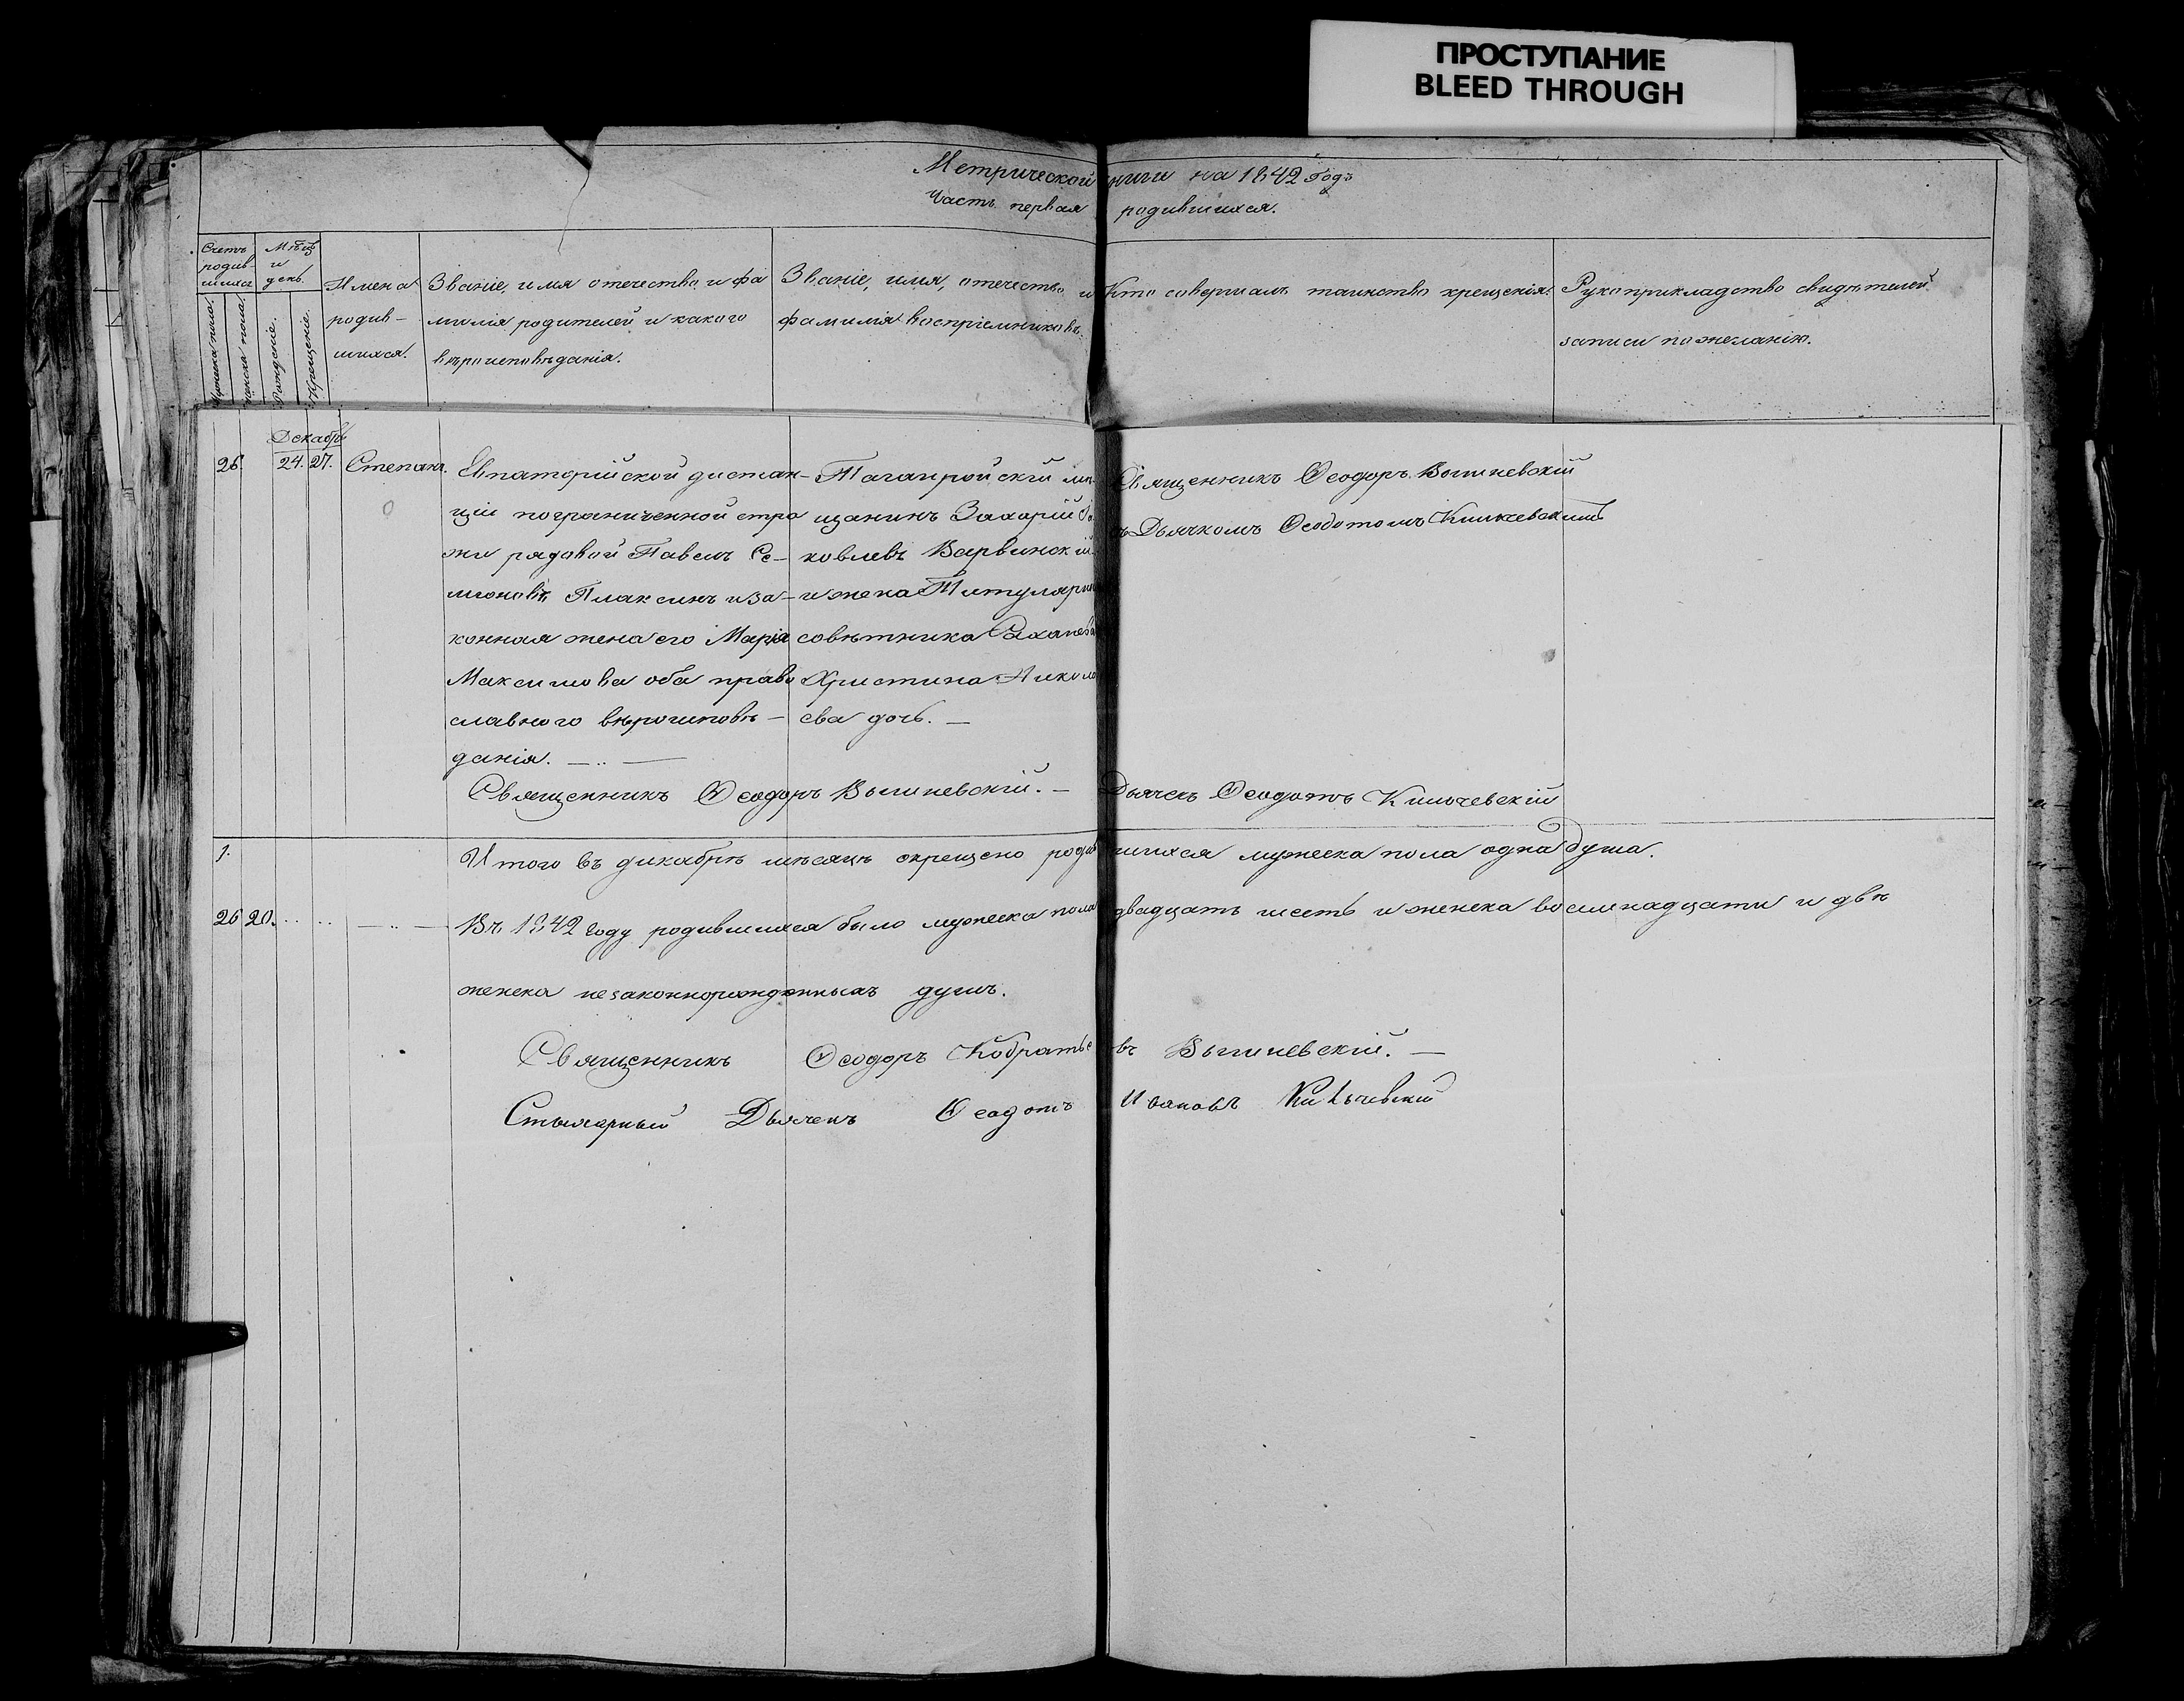 ПРОСТУПАНИЕ
BLEED THROUGH
Метрической книги на 1842 годъ
Часть первая родившихся.
Счетъ родив-шихся
Мужеска пола.
Женска пола.
Мѣсяцъ и день.
Рожденіе.
Крещеніе.
Имена родив-шихся.
Званіе, имя отечество и фа
милія родителей и какого
вѣроисповѣданія.
Званіе, имя, отечество и
фамилія воспріемниковъ.
Кто совершалъ таинство крещенія.
Рукоприкладство свидѣтелей
записи по желанію.
Декабрь
26. 24. 27. Степанъ.
Евпаторійской дистан-
ціи пограничной стра
жи рядовой Павелъ Се-
міоновъ Плаксинъ и за-
конная жена его Марія
Максимова оба право
славного вѣроисповѣ-
данія.
Таганройскій мѣ-
щанинъ Захарій Я-
ковлевъ Варвинскій
и жена Титулярн
совѣтника
Христина Никола
ева дочь.
Священникъ Ѳеодоръ Вышневскій
съ Дьячкомъ Ѳеодотомъ Кильчевскимъ
Священникъ Ѳеодоръ Вышневскій. Дьячекъ Ѳеодотъ Кильчевскій
1. Итого въ декабрѣ мѣсяцѣ окрещено родившихся мужеска пола одна душа.
26 20. Въ 1842 году родившихся было мужеска пола двадцать шесть и женска восемнадцать и двѣ
женска незаконнорожденныхъ душъ.
Священникъ Ѳеодоръ Вышневскій.
Дьячекъ Ѳеодотъ Ивановъ Кильчевскій